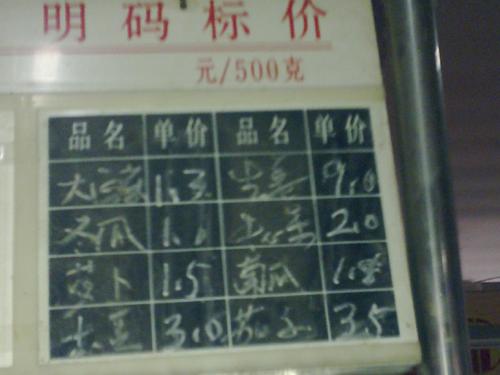 明码标价
元/500克
品名 单价 品名 单价
大 1.3 生姜 9.0
冬瓜 1.1 2.0
萝卜 1.5 南瓜 1.8
土豆 3.0 茄子 3.5